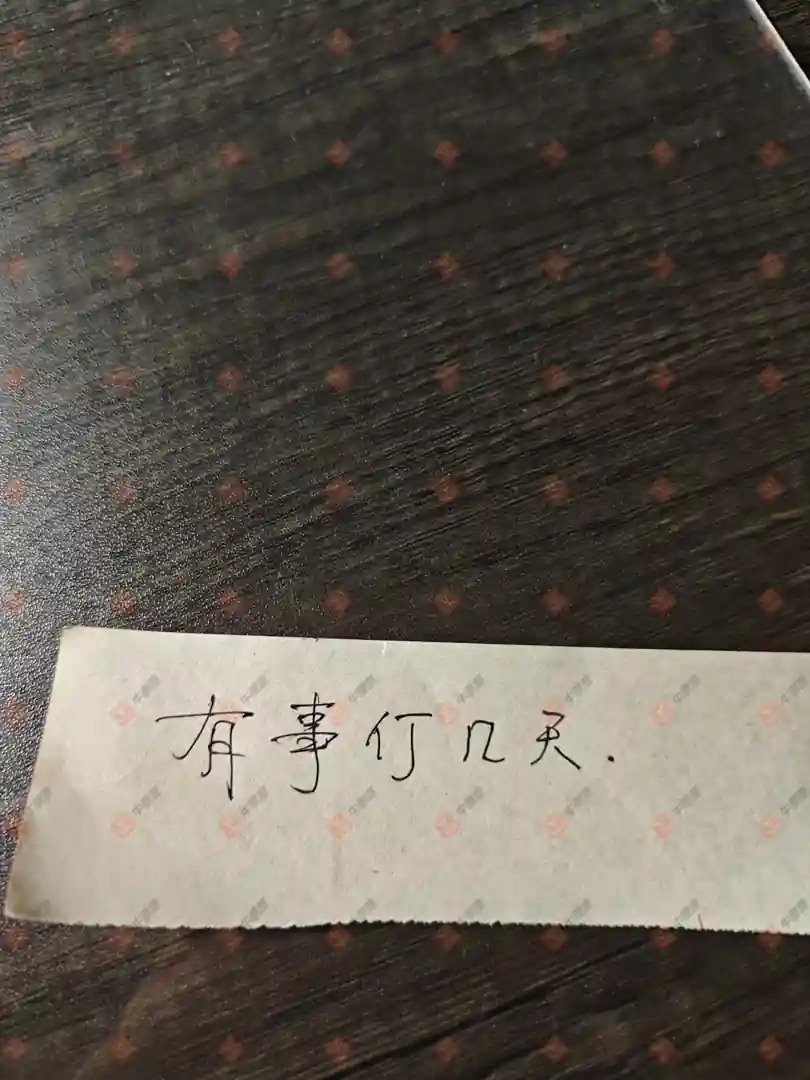 有事仃几天.